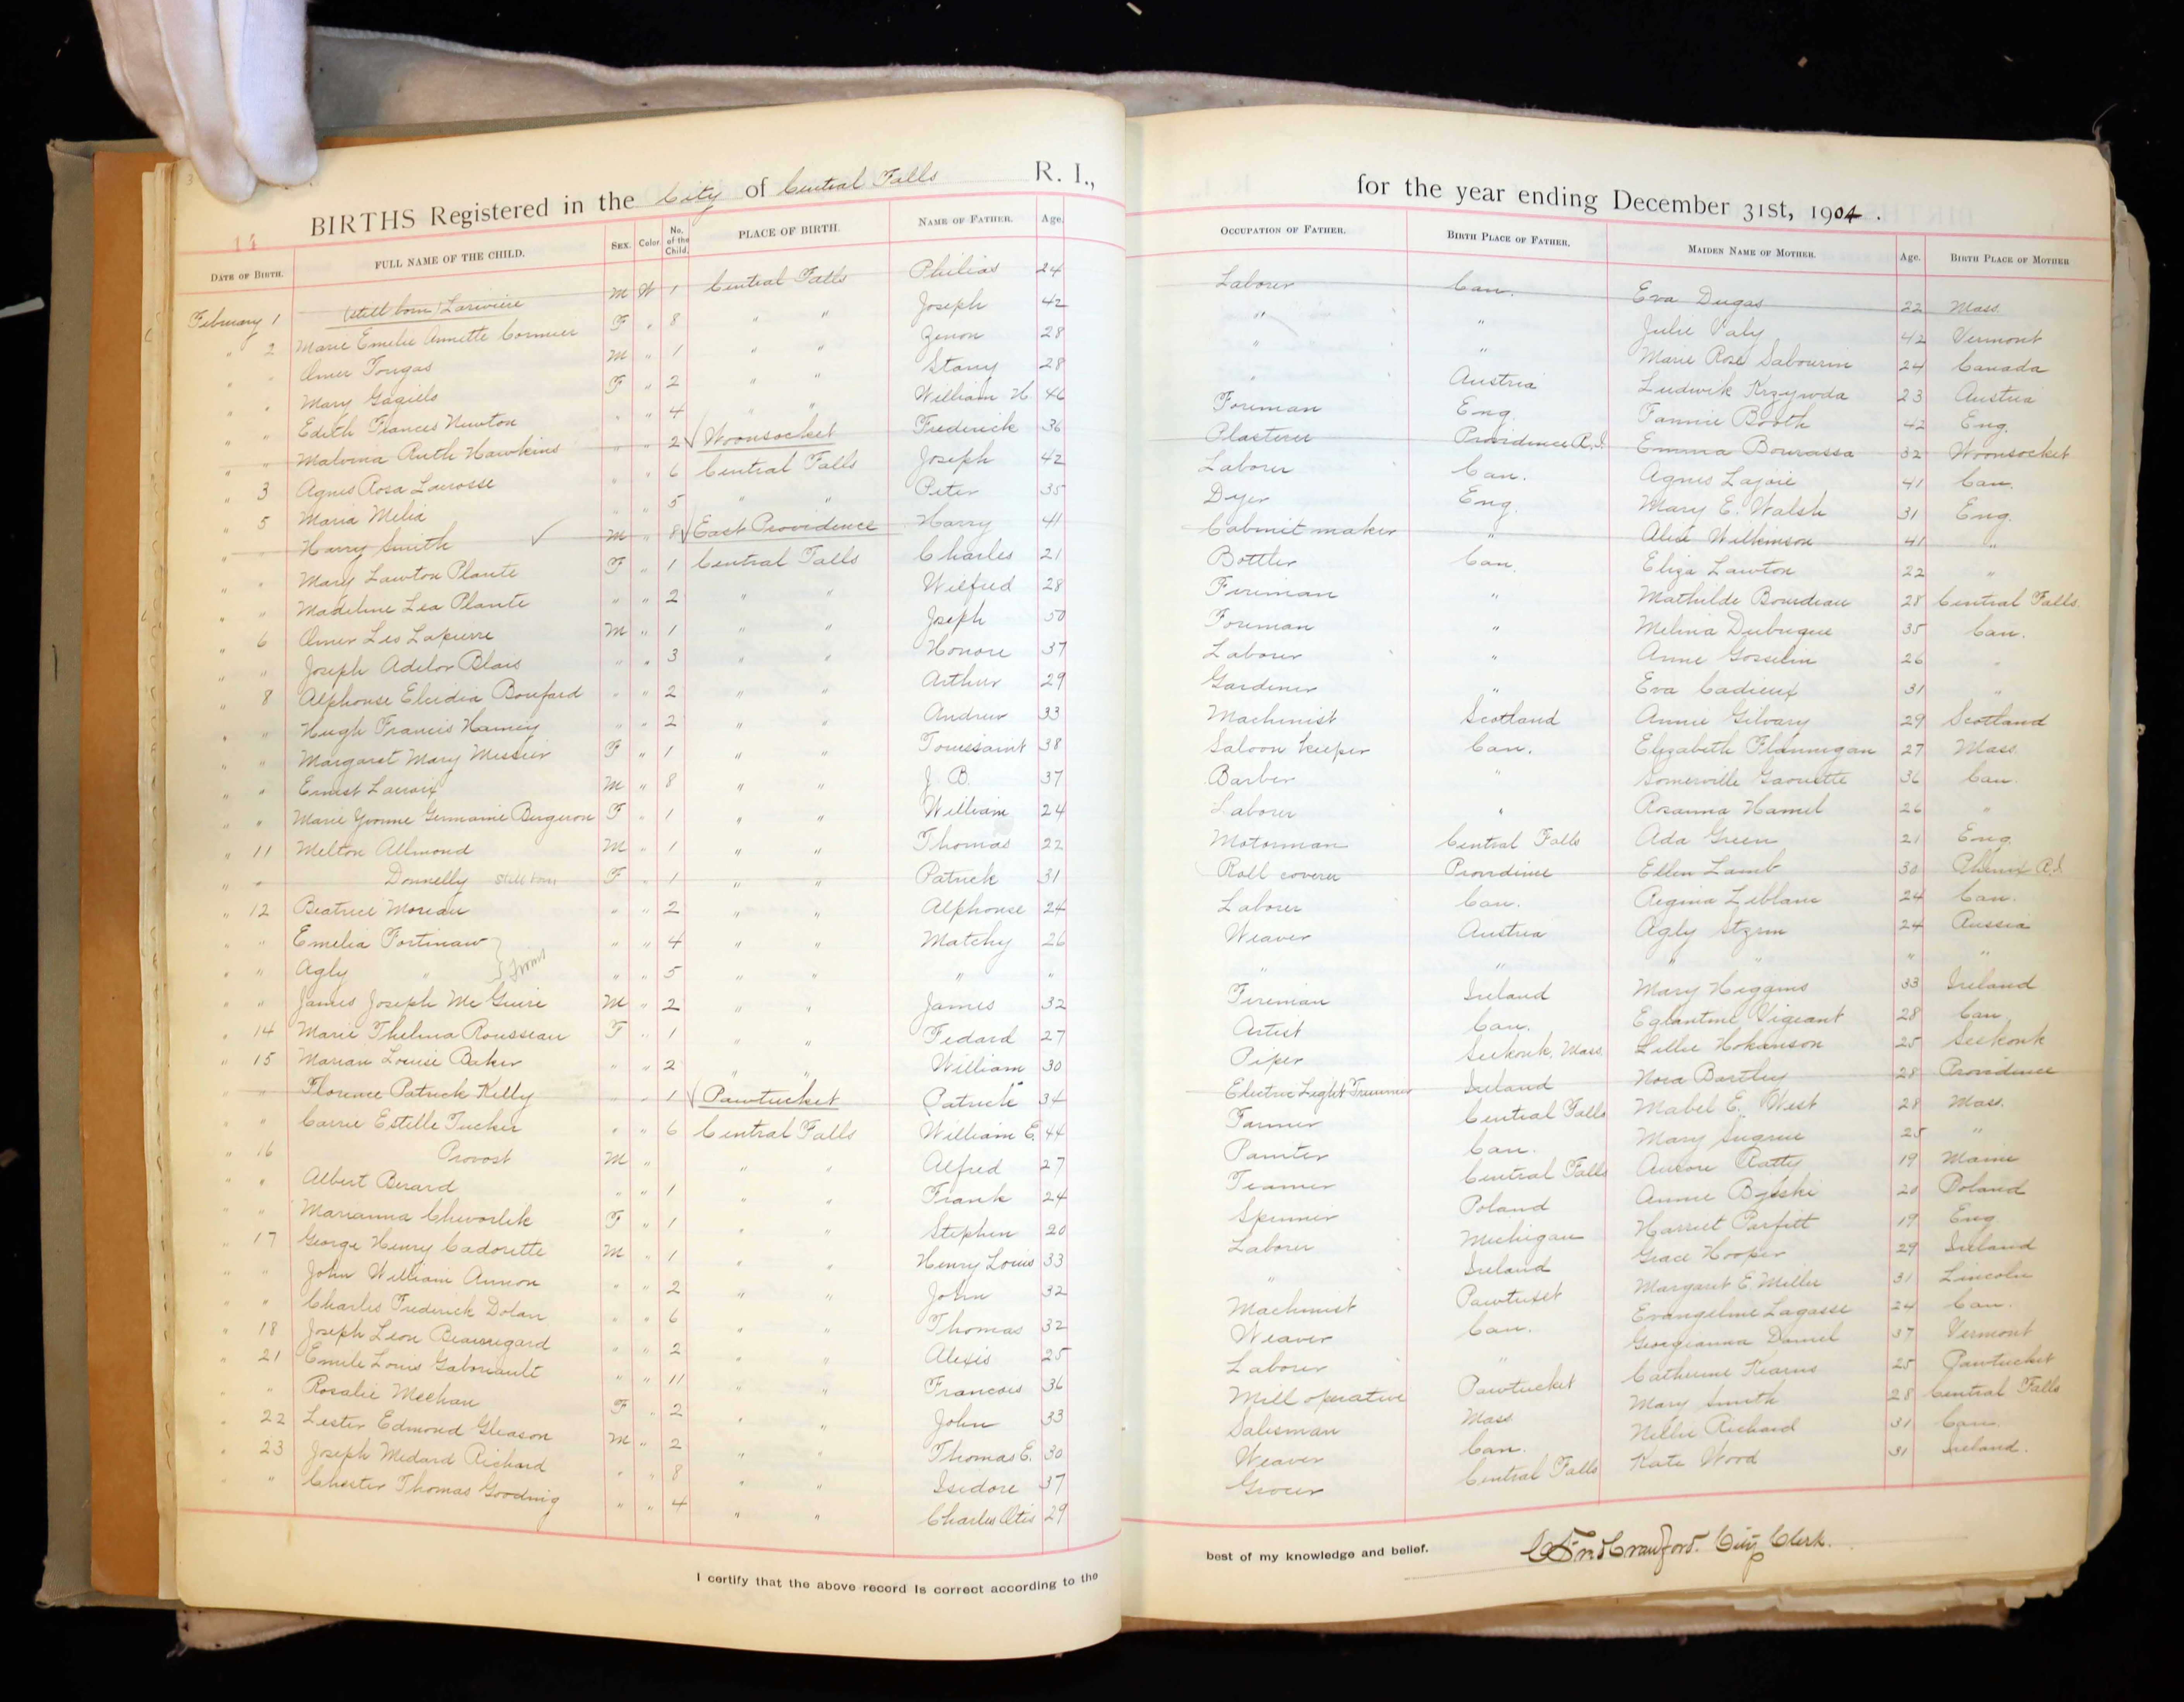 BIRTHS Registered in the City of Central Falls R. I.,
14
DATE OF BIRTH. FULL NAME OF THE CHILD. SEX. Color. No. of the Child. PLACE OF BIRTH. NAME OF FATHER. Age.
February 1 (still born) Lariviere M W 1 Central Falls Philias 24
" 2 Marie Emelie Annette Cormier F " 8 " " Joseph 42
" " Omer Fougas M " 1 " " Zenon 28
" " Mary Gagiels F " 2 " " Stany 28
" " Edith Frances Newton " " 4 " " William H. 46
" " Malvina Ruth Hawkins " " 2 √ Woonsocket Frederick 36
" 3 Agnes Rosa Lacrosse " " 6 Central Falls Joseph 42
" 5 Maria Melia " " 5 " " Peter 35
" " Harry Smith ✓ M " 8 √ East Providence Harry 41
" " Mary Lawton Plante F " 1 Central Falls Charles 21
" " Madeline Lea Plante " " 2 " " Wilfred 28
" 6 Omer Leo Lapierre M " 1 " " Joseph 50
" " Joseph Adelor Blais " " 3 " " Honore 37
" 8 Alphonse Elcidia Boufard " " 2 " " Arthur 29
" " Hugh Francis " " 2 " " Andrew 33
" " Margaret Mary Messier F " 1 " " Toussaint 38
" " Ernest Lacroix M " 8 " " J. B. 37
" " Marie Yvonne Germaine Bergeron F " 1 " " William 24
" 11 Melton Allmond M " 1 " " Thomas 22
" " Donnelly still born F " 1 " " Patrick 31
" 12 Beatrice Moreau " " 2 " " Alphonse 24
" " Emelia Fortinaw " " 4 " " Matchy 26
" " Agly " } Twins " " 5 " " " "
" " James Joseph Mc Guire M " 2 " " James 32
" 14 Marie Thelma Rousseau F " 1 " " Fedard 27
" 15 Marian Louise Baker " " 2 " " William 30
" " Florence Patrick Kelly " " 1 √ Pawtucket Patrick 34
" " Carrie Estelle Tucker " " 6 Central Falls William E. 44
" 16 Provost M " " " Alfred 27
" " Albert Berard " " 1 " " Frank 24
" " Marianna Chworlik F " 1 " " Stephen 20
" 17 George Henry Cadorette M " 1 " " Henry Louis 33
" " John William Annon " " 2 " " John 32
" " Charles Frederick Dolan " " 6 " " Thomas 32
" 18 Joseph Leon Beauregard " " 2 " " Alexis 25
" 21 Emile Louis Gaboriault " " 11 " " Francois 36
" " Rosalie Meehan F " 2 " " John 33
" 22 Lester Edmond Gleason M " 2 " " Thomas E. 30
" 23 Joseph Medard Richard " " 8 " " Isidore 37
" " Chester Thomas Gooding " " 4 " " Charles Otis 29
I certify that the above record is correct according to the
for the year ending December 31st, 1904.
OCCUPATION OF FATHER. BIRTH PLACE OF FATHER. MAIDEN NAME OF MOTHER. Age. BIRTH PLACE OF MOTHER
Laborer Can. Eva Dugas 22 Mass.
" " Julie Valy 42 Vermont
" " Marie Rose Sabourin 24 Canada
" Austria Ludwik Krzywda 23 Austria
Foreman Eng. Fannie Booth 42 Eng.
Plasterer Providence R.I. Emma Bourassa 32 Woonsocket
Laborer Can. Agnes Lajoie 41 Can.
Dyer Eng. Mary E. Walsh 31 Eng.
Cabinet maker " Alice Wilkinson 41 "
Bottler Can. Eliza Lawton 22 "
Fireman " Mathilde Bourdeau 28 Central Falls.
Foreman " Melina Dubuque 35 Can.
Laborer " Anne Gosselin 26 "
Gardener " Eva Cadieux 31 "
Machinist Scotland Annie Gilvary 29 Scotland
Saloon keeper Can. Elizabeth Flannegan 27 Mass.
Barber " Somerville Gaouette 36 Can.
Laborer " Rosanna Hamel 26 "
Motorman Central Falls Ada Green 21 Eng.
Roll coverer Providence Ellen Lamb 30 Phenix R.I.
Laborer Can. Regina Leblanc 24 Can.
Weaver Austria Agly Stzrm 24 Russia
" " " " " "
Fireman Ireland Mary Higgins 33 Ireland
Artist Can. Eglantine Vigeant 28 Can.
Piper Seekonk, Mass. Lillie Hokanson 25 Seekonk
Electric Light Trimmer Ireland Nora Bartley 28 Providence
Farmer Central Falls Mabel E. West 28 Mass.
Painter Can. Mary Sugrue 25 "
Teamer Central Falls Aurore Ratty 19 Maine
Spinner Poland Annie Bylski 20 Poland
Laborer Michigan Harriet Parfitt 19 Eng
" Ireland Grace Hooper 29 Ireland
Machinist Pawtuxet Margaret E. Miller 31 Lincoln
Weaver Can. Evangeline Lagasse 24 Can.
Laborer " Georgianna Daniel 37 Vermont
Mill operative Pawtucket Catherine Kearns 25 Pawtucket
Salesman Mass. Mary Smith 28 Central Falls
Weaver Can. Nellie Richard 31 Can.
Grocer Central Falls Kate Wood 31 Ireland.
best of my knowledge and belief. Crawford. City Clerk.